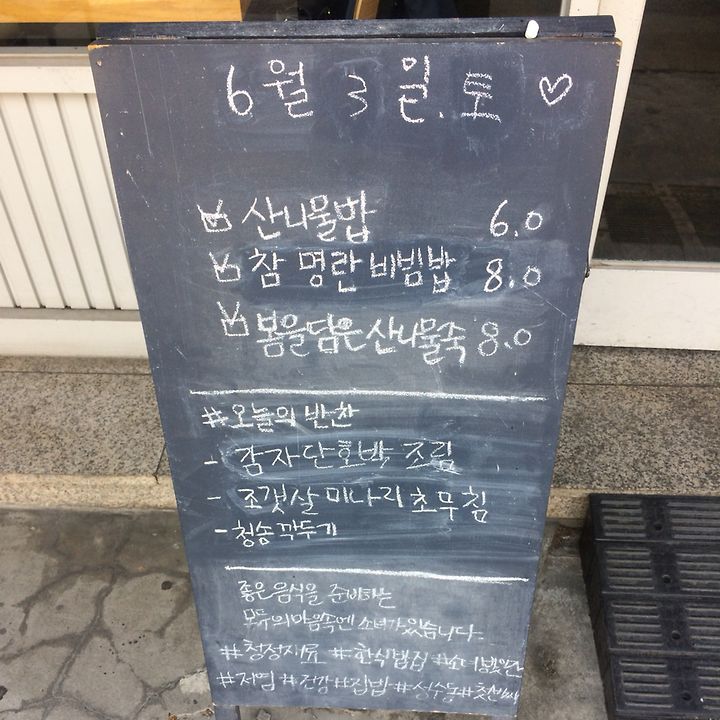 6월 3일.토 ♡
산나물밥 6.0
참 명란 비빔밥 8.0
봄을담은산나물죽 8.0
#오늘의 반찬
- 감자단호박 조림
- 조갯살미나리초무침
- 청송깍두기
좋은음식을 준비하는
모두의마음속엔 소녀가있습니다.
#청정재료 #한식밥집
#건강 #집밥 #석수동